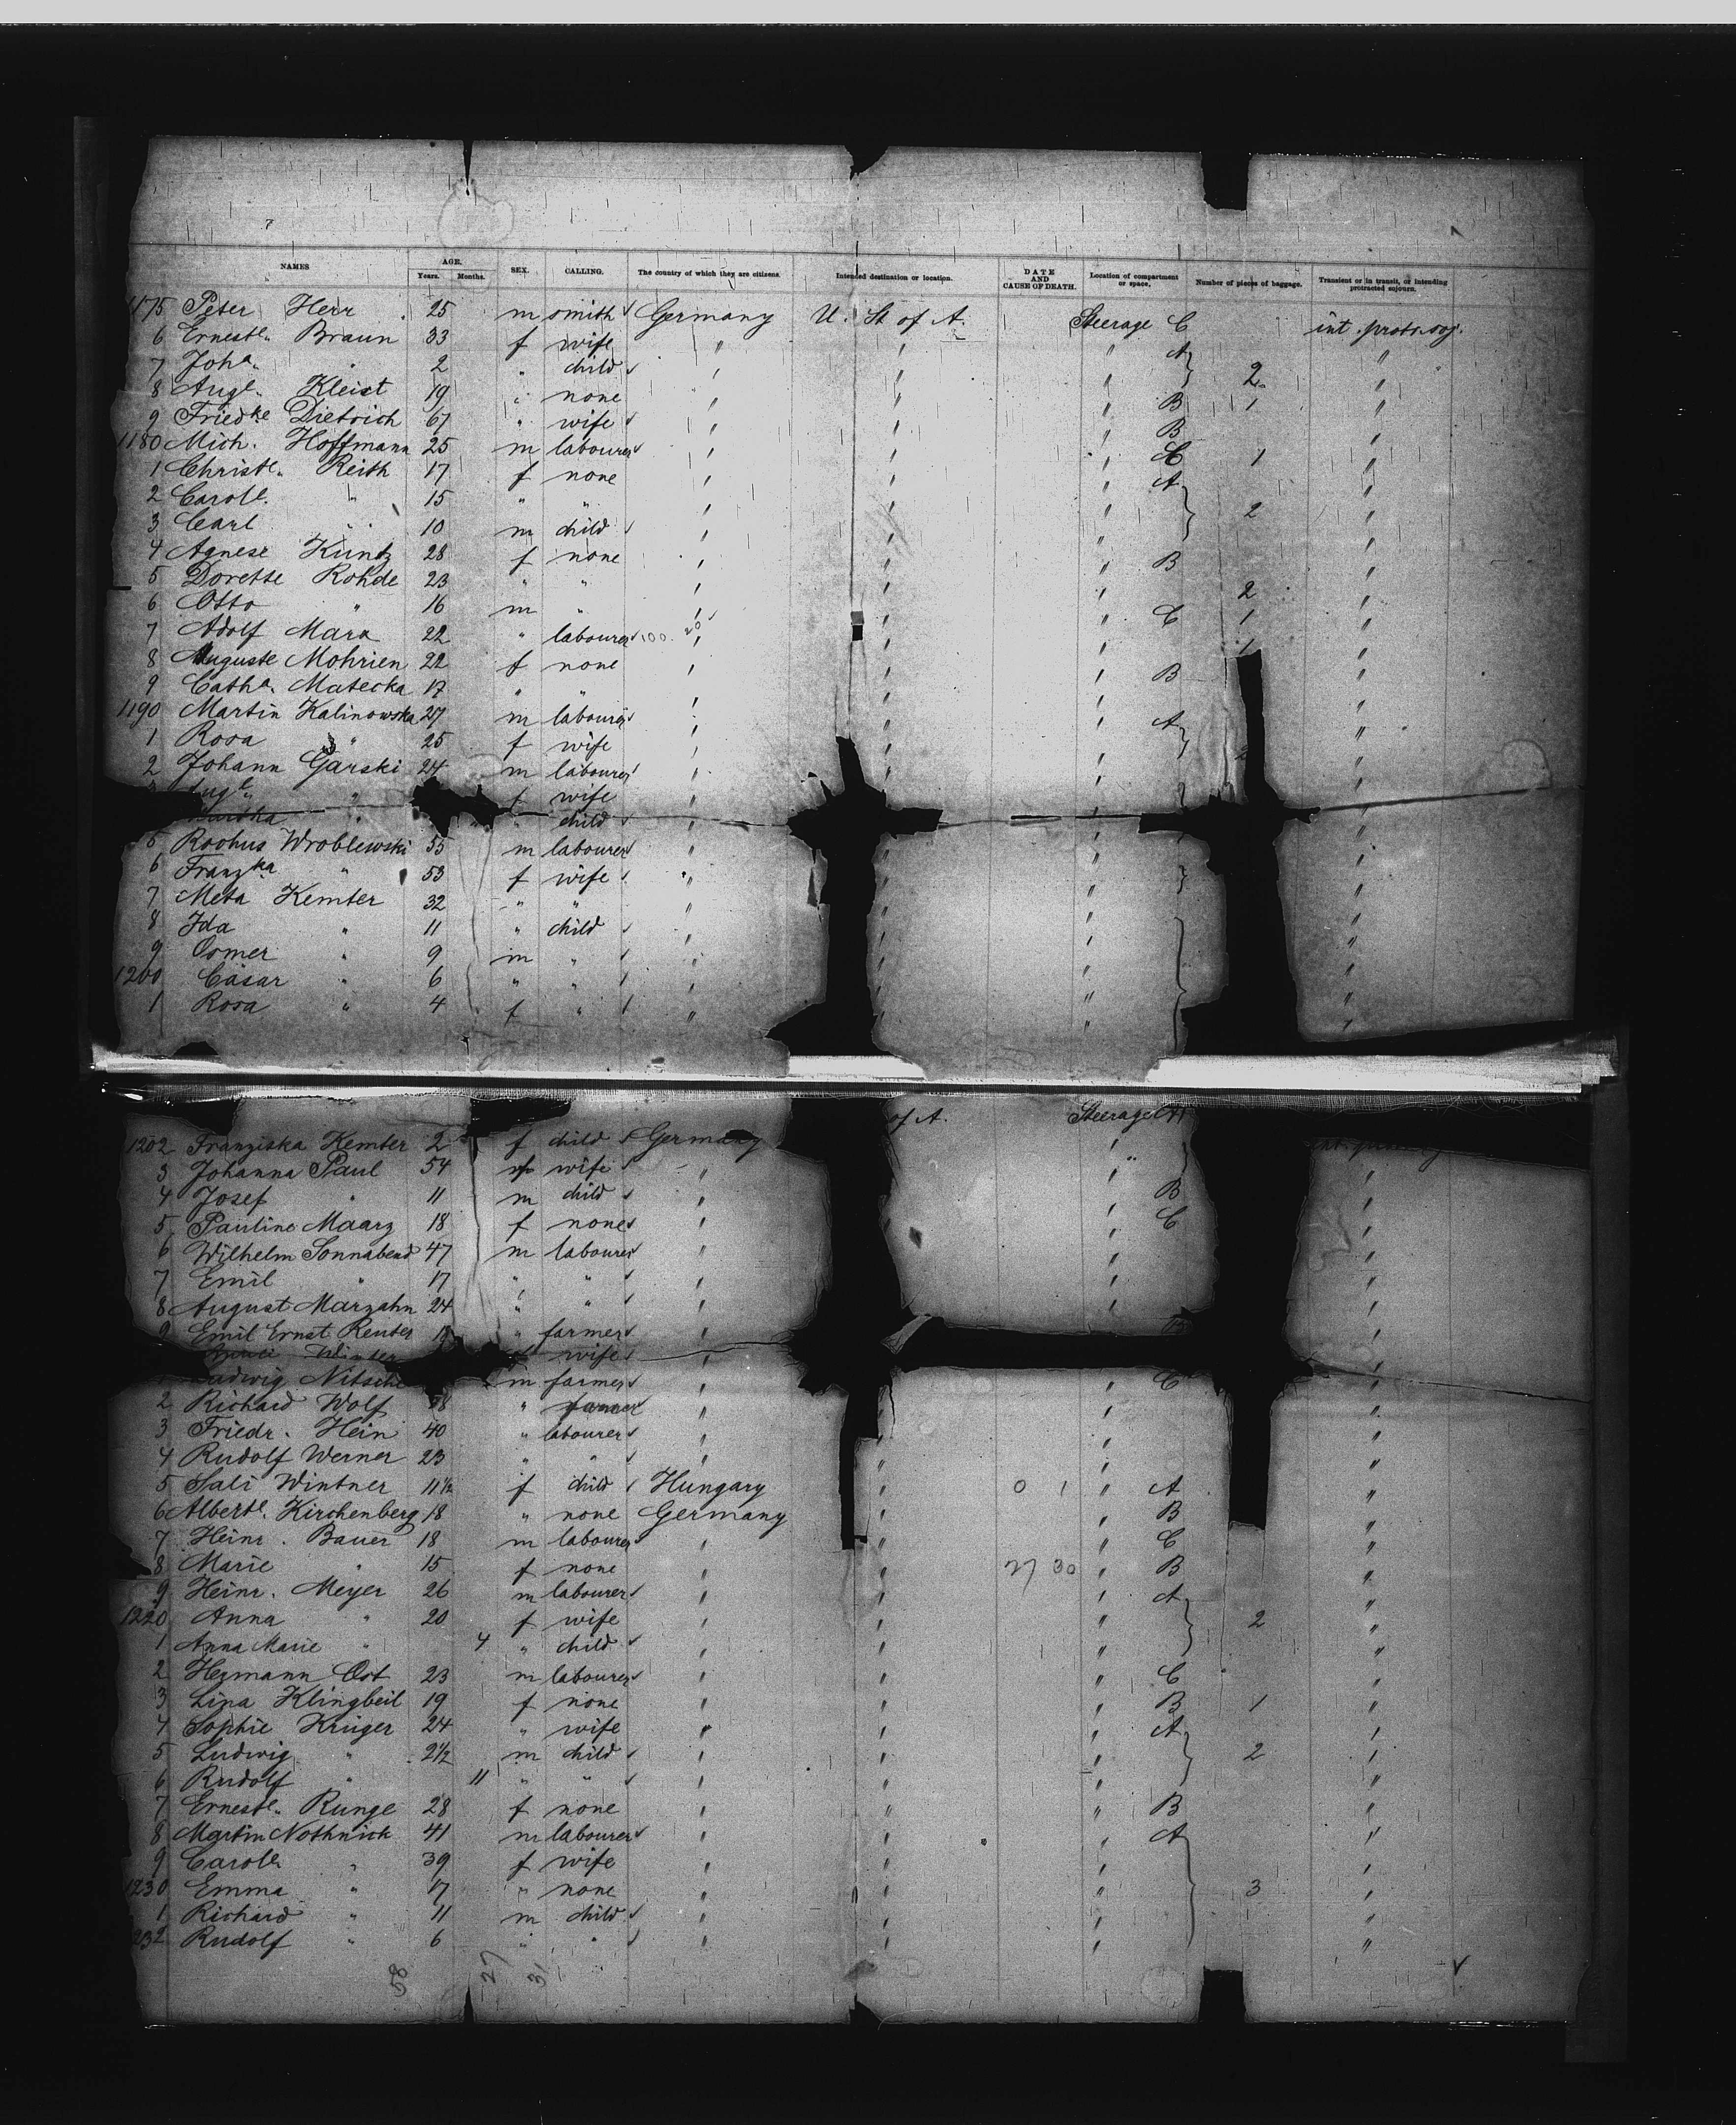 NAMES AGE. Years. Months. SEX. CALLING. The country of which they are citizens. Intended destination or location. DATE AND CAUSE OF DEATH. Location of compartment or space. Number of pieces of baggage. Transient or in transit, or intending protracted sojourn.
1175 Peter Herr 25 m smith Germany U. St of A. Steerage C int. protr. soj.
6 Ernestl. Braun 33 f wife " " " A "
7 Joha. " 2 " child " " " 2 "
8 Augl. Kleist 19 " none " " " B 1 "
9 Friedke Dietrich 67 " wife " " " B "
1180 Mich. Hoffmann 25 m labourer " " " C 1 "
1 Christl. Reith 17 f none " " " A "
2 Carol. " 15 " " " " " 2 "
3 Carl " 10 m child " " " "
4 Agnese Kuntz 28 f none " " " B "
5 Dorette Rohde 23 " " " " " 2 "
6 Otto " 16 m " " " " C 1 "
7 Adolf Marx 22 " labourer 100. 20 " " " 1 "
8 Auguste Mohrien 22 f none " " " B "
9 Catha. Matecka 17 " " " " " "
1190 Martin Kalinowska 27 m labourer " " " A "
1 Rosa " 25 f wife " " " 2 "
2 Johann Garski 24 m labourer " " " "
Augl. " f wife " " " "
Martha " " child " " " "
5 Rochus Wroblewski 55 m labourer " " " "
6 Franzka " 53 f wife " " " "
7 Meta Kemter 32 " " " " " "
8 Ida " 11 " child " " " "
9 Osmer " 9 m " " " " "
1200 Cäsar " 6 " " " " " "
1 Rosa " 4 f " " " " "
1202 Franziska Kemter 2 f child Germany of A. Steerage A
3 Johanna Paul 54 f wife " " "
4 Josef " 11 m child " " B "
5 Pauline Maarz 18 f none " " C "
6 Wilhelm Sonnabend 47 m labourer " " "
7 Emil " 17 " " " " "
8 August Marzahn 24 " " " " "
9 Emil Ernst Reuter " farmer "
Winter wife " "
1 Ludwig Nitsche m farmer " " " C "
2 Richard Wolf " farmer " " " "
3 Friedr. Hein 40 " labourer " " " "
4 Rudolf Werner 23 " " " " " "
5 Sali Wintner 11½ f child Hungary " 0 1 " A "
6 Albertl. Kirchenberg 18 " none Germany " " B "
7 Heinr. Bauer 18 m labourer " " " C "
8 Marie " 15 f none " " 27 30 " B "
9 Heinr. Meyer 26 m labourer " " " A "
1220 Anna " 20 f wife " " " 2 "
1 Anna Marie " 4 " child " " " "
2 Hermann Ost 23 m labourer " " " C "
3 Lina Klingbeil 19 f none " " " B 1 "
4 Sophie Krüger 24 " wife " " " A "
5 Ludwig " 2½ m child " " " 2 "
6 Rudolf " 11 " " " " " "
7 Ernestl. Runge 28 f none " " " B "
8 Martin Nothnick 41 m labourer " " " A "
9 Carol. " 39 f wife " " " "
1230 Emma " 17 " none " " " 3 "
1 Richard " 11 m child " " " "
232 Rudolf " 6 " " " " " "
58 27 31